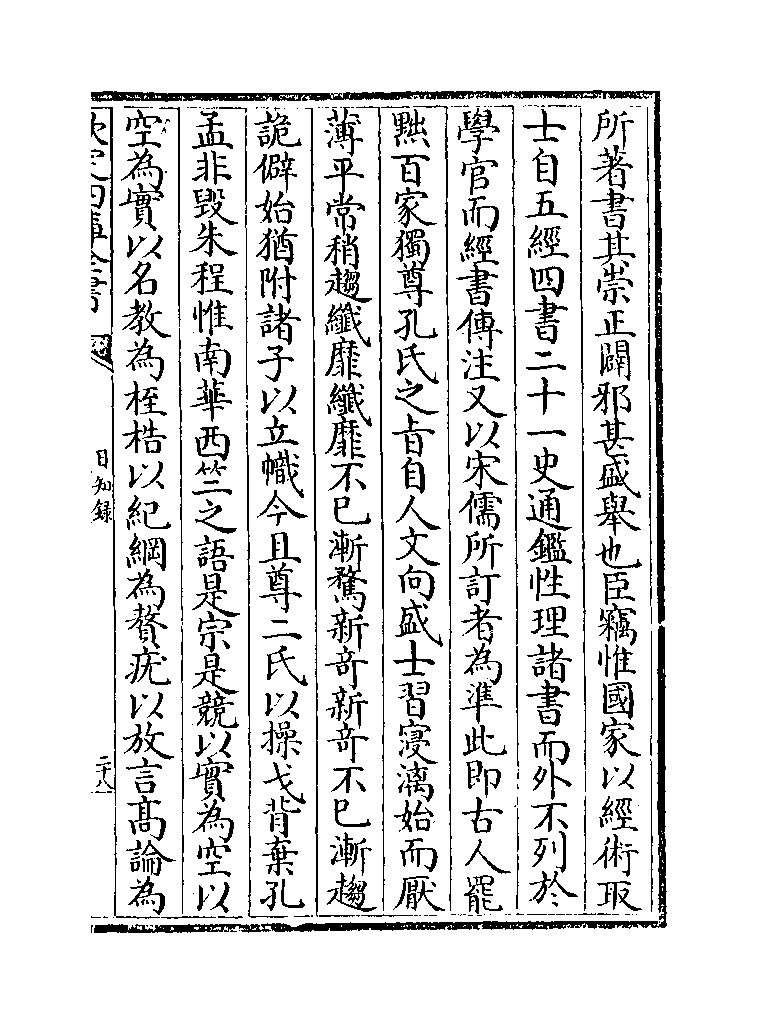 所著書其崇正闢邪甚盛舉也臣竊惟國家以經術取
士自五經四書二十一史通鑑性理諸書而外不列於
學官而經書傳注又以宋儒所訂者為準此即古人罷
黜百家獨尊孔氏之㫖自人文向盛士習寖漓始而厭
薄平常稍趨纖靡纖靡不已漸騖新竒新竒不已漸趨
詭僻始猶附諸子以立幟今且尊二氏以操戈背棄孔
孟非毀朱程惟南華西竺之語是宗是競以實為空以
空為實以名教為桎梏以紀綱為贅疣以放言髙論為
欽定四庫全書
日知録
二十八